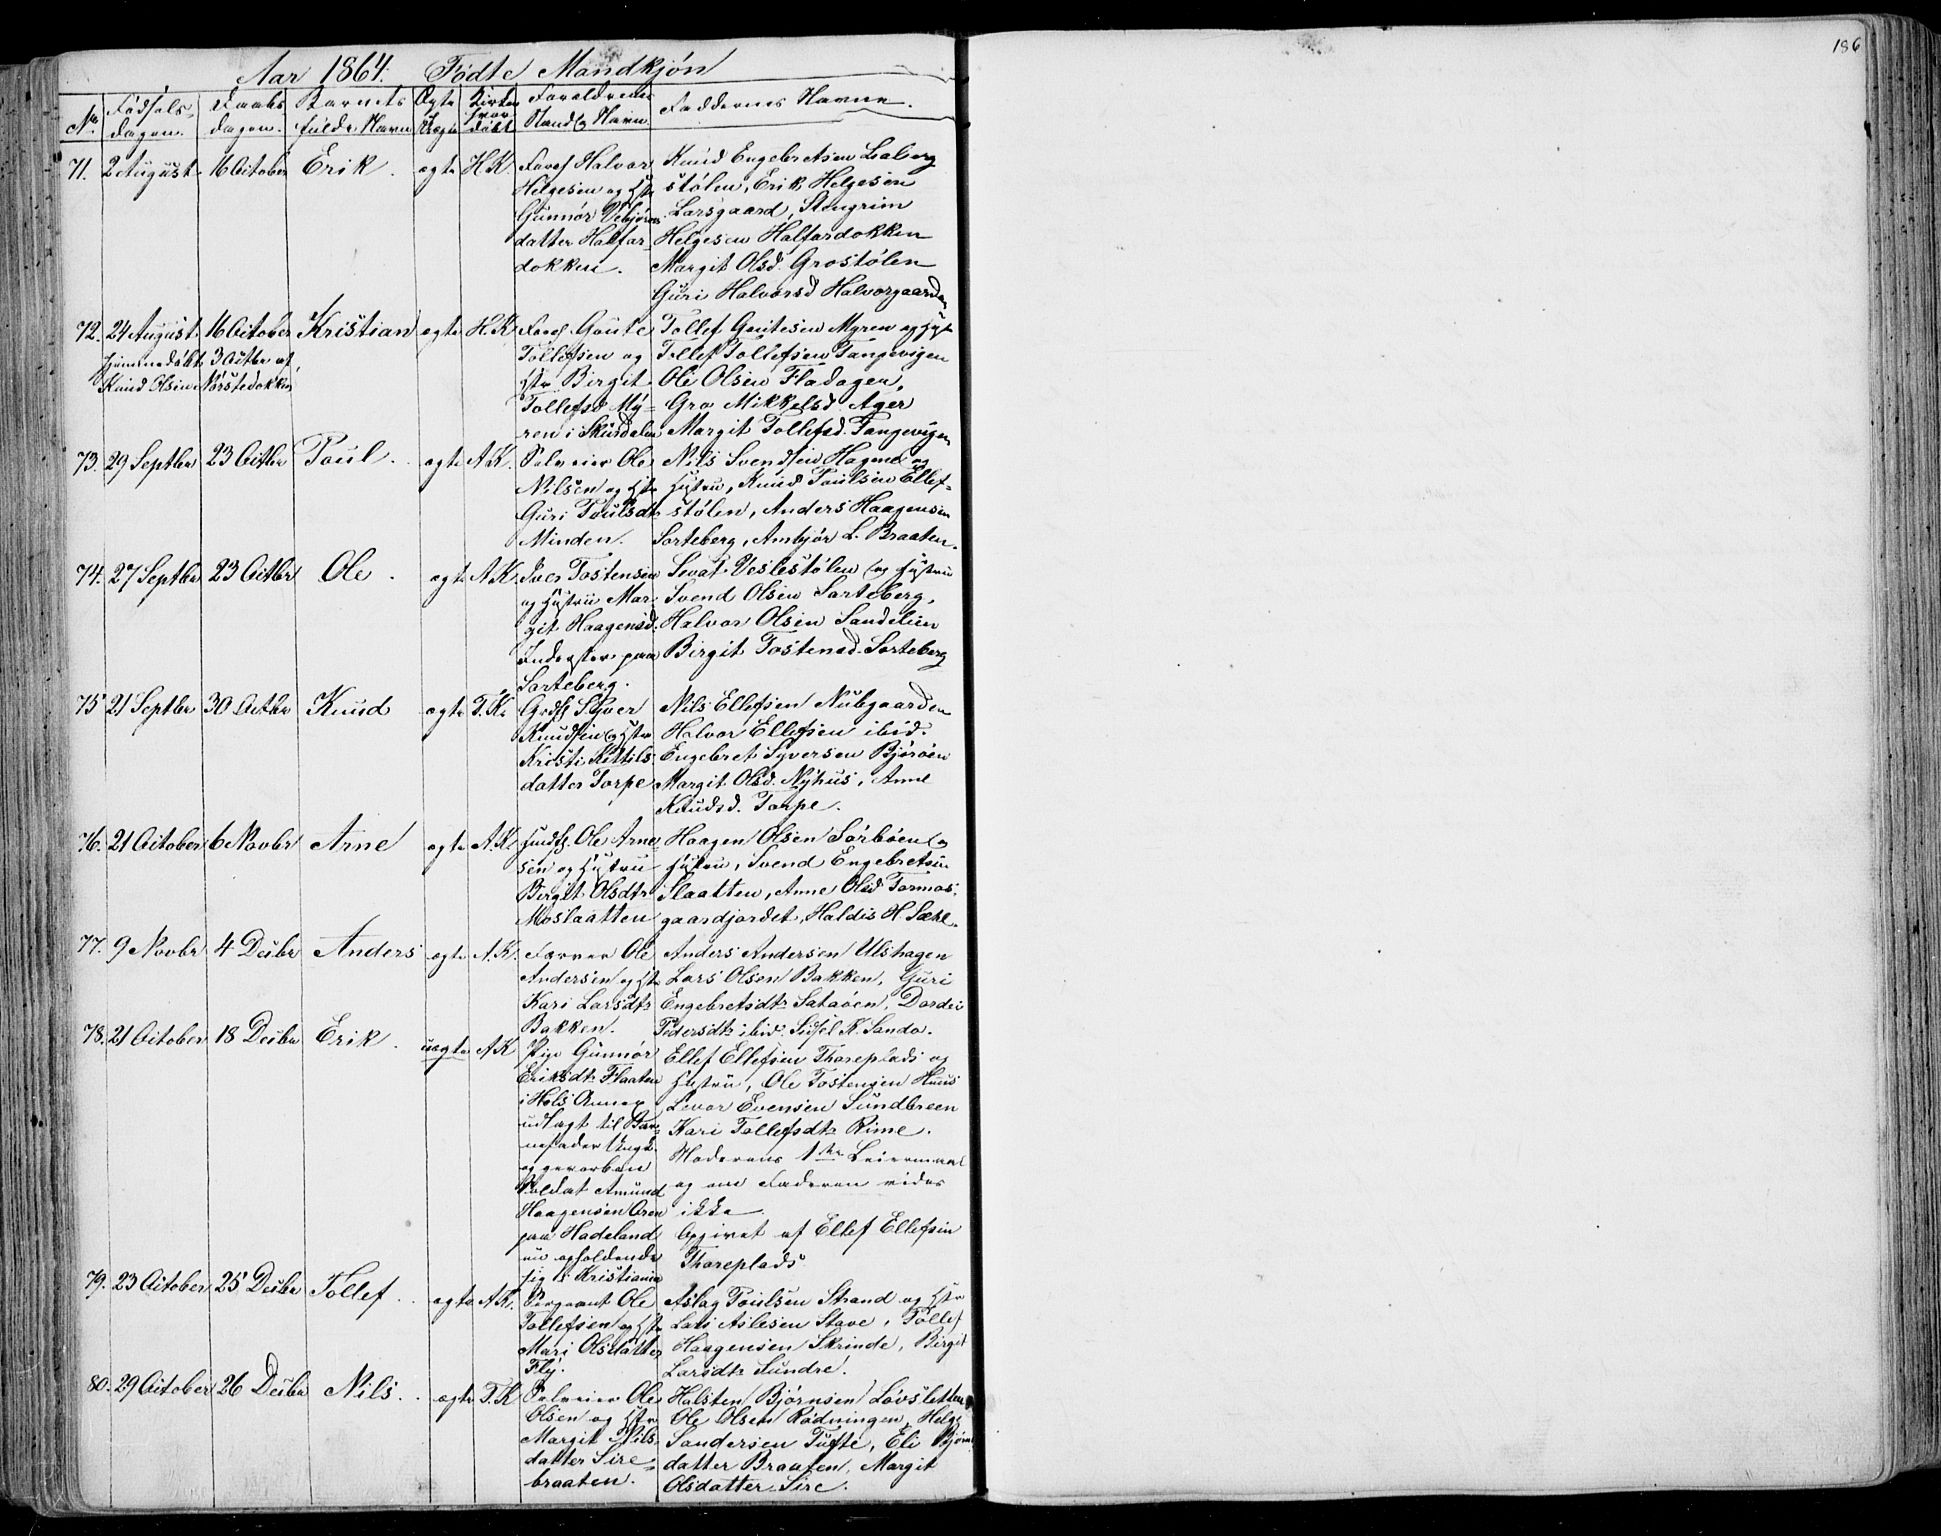 186
Aar 1864. Fødte Mandkjøn
No. Fødsels- dagen. Daabs dagen. Barnets fulde Navn Ægte Uægte Kirke hvor døbt Forældrenes Stand & Navn Faddernes Navne.
71. 2 August 16 October Erik. ægte H.K. Halvor Helgesen og Hstr Gunnor datter Halfar- dokken.
Knud Engebretsen
stølen, Erik Helgesen
Larsgaard, Stengrim
Helgesen Halfardokken
Margit Olsd. Grostølen
Guri Halvorsd Halvorgaarden
72. 24 August 16 October Kristian ægte H.K. Goute Tollefsen og Hstr Birgit Tollefsd My- ren i Skurdalen
Hjemmedøbt 3 Octbr af
Knud Olsen Nørstedokken
Tollef Goutesen Myren og Hstr
Tollef Tollefsen Tangevigen
Ole Olsen Fladagen,
Gro Mikkelsd. Ager
Margit Tollefsd. Tangevigen
73. 29 Septbr 23 Octbr Poul. ægte A.K. Selveier Ole Nilsen og Hstr Guri Poulsdtr Minden.
Nils Svendsen Hagene og
Hustru, Knud Poulsen Ellef-
stølen, Anders Haagensen
Sorteberg, Ambjør L. Braaten.
74. 27 Septbr 23 Octbr Ole. ægte A.K. Iver Tostensen og Hustru Mar- git Haagensd. Inderster paa Sorteberg.
Sevat Veslestølen og Hustru
Svend Olsen Sorteberg,
Halvor Olsen Sandelien
Birgit Tostensd. Sorteberg
75 21 Septbr 30 Octbr Knud ægte T.K. Grdbr Syver Knudsen og Hstr Kristi Kittils- datter Torpe
Nils Ellefsen Nubgaarden
Halvor Ellefsen ibid.
Engebret Syversen Bjørøen
Margit Olsd. Nyhus, Anne
Knudsd. Torpe.
76. 21 October 6 Novbr Arne ægte A.K. Ole Arne- sen og Hustru Birgit Olsdtr Moslaatten
Haagen Olsen Sørbøen og
Hustru, Svend Engebretsen
Slaatten, Anne Olsd Tormos-
gaardjordet, Haldis H. Sæhl.
77. 9 Novbr 4 Decbr Anders ægte A.K. Ole Andersen og Hstr Kari Larsdtr Bakken.
Anders Andersen Ulshagen
Lars Olsen Bakken, Guri
Engebretsdtr Sataøen, Dordei
Pedersdtr ibid. Sidsel K. Sando.
78. 21 October 18 Decbr Erik. uægte A.K. Pige Gunnor Eriksdtr Flaaten i Hols Annex udlagt til Bar- nefader Ungk. og gevorben Soldat Amund Haagensen Oren paa Hadeland nu opholdende sig i Kristiania
Ellef Ellefsen Thoreplads og
Hustru, Ole Tostensen Huus
Levor Evensen Sundbreen
Kari Tollefsdtr Rime.
Moderens 1ste Leiermaal
og om Faderen vides
ikke
Opgivet af Ellef Ellefsen
Thoreplads
79. 23 October 25 Decbr Tollef. ægte A.K. Sergeant Ole Tollefsen og Hstr Mari Olsdatter Fly.
Aslag Poulsen Strand og Hstr
Lars Aslesen Stave, Tollef
Haagensen Skrinde, Birgit
Larsdtr Sundre.
80. 29 October 26 Decbr Nils. ægte T.K. Selveier Ole Olsen og Hstr Margit Nils- datter Sire- braaten.
Halsten Bjørnsen Løvsletten
Ole Olsen Rødningen, Helge
Sandersen Tufte, Eli Bjørns
datter Braaten, Margit
Olsdatter Sire.